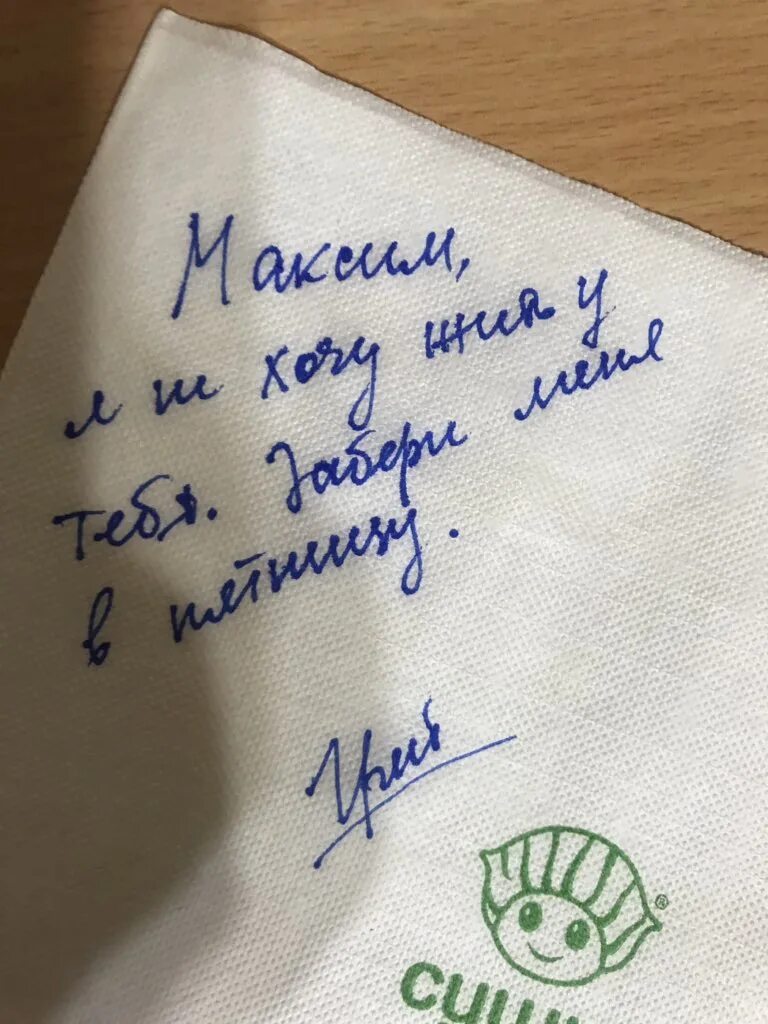 Максим,
я не хочу жить у
тебя. Забери меня
в пятницу.
суши